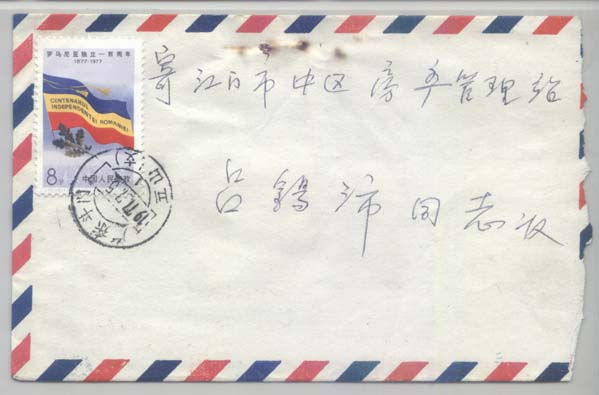 罗马尼亚独立一百周年
1877-1977
CENTENARUL
INDEPENDENTEI ROMANIEI
8分
中国人民邮政
寄江门市中区房产管理站
吕鹤沛同志收
广东斗门
五山